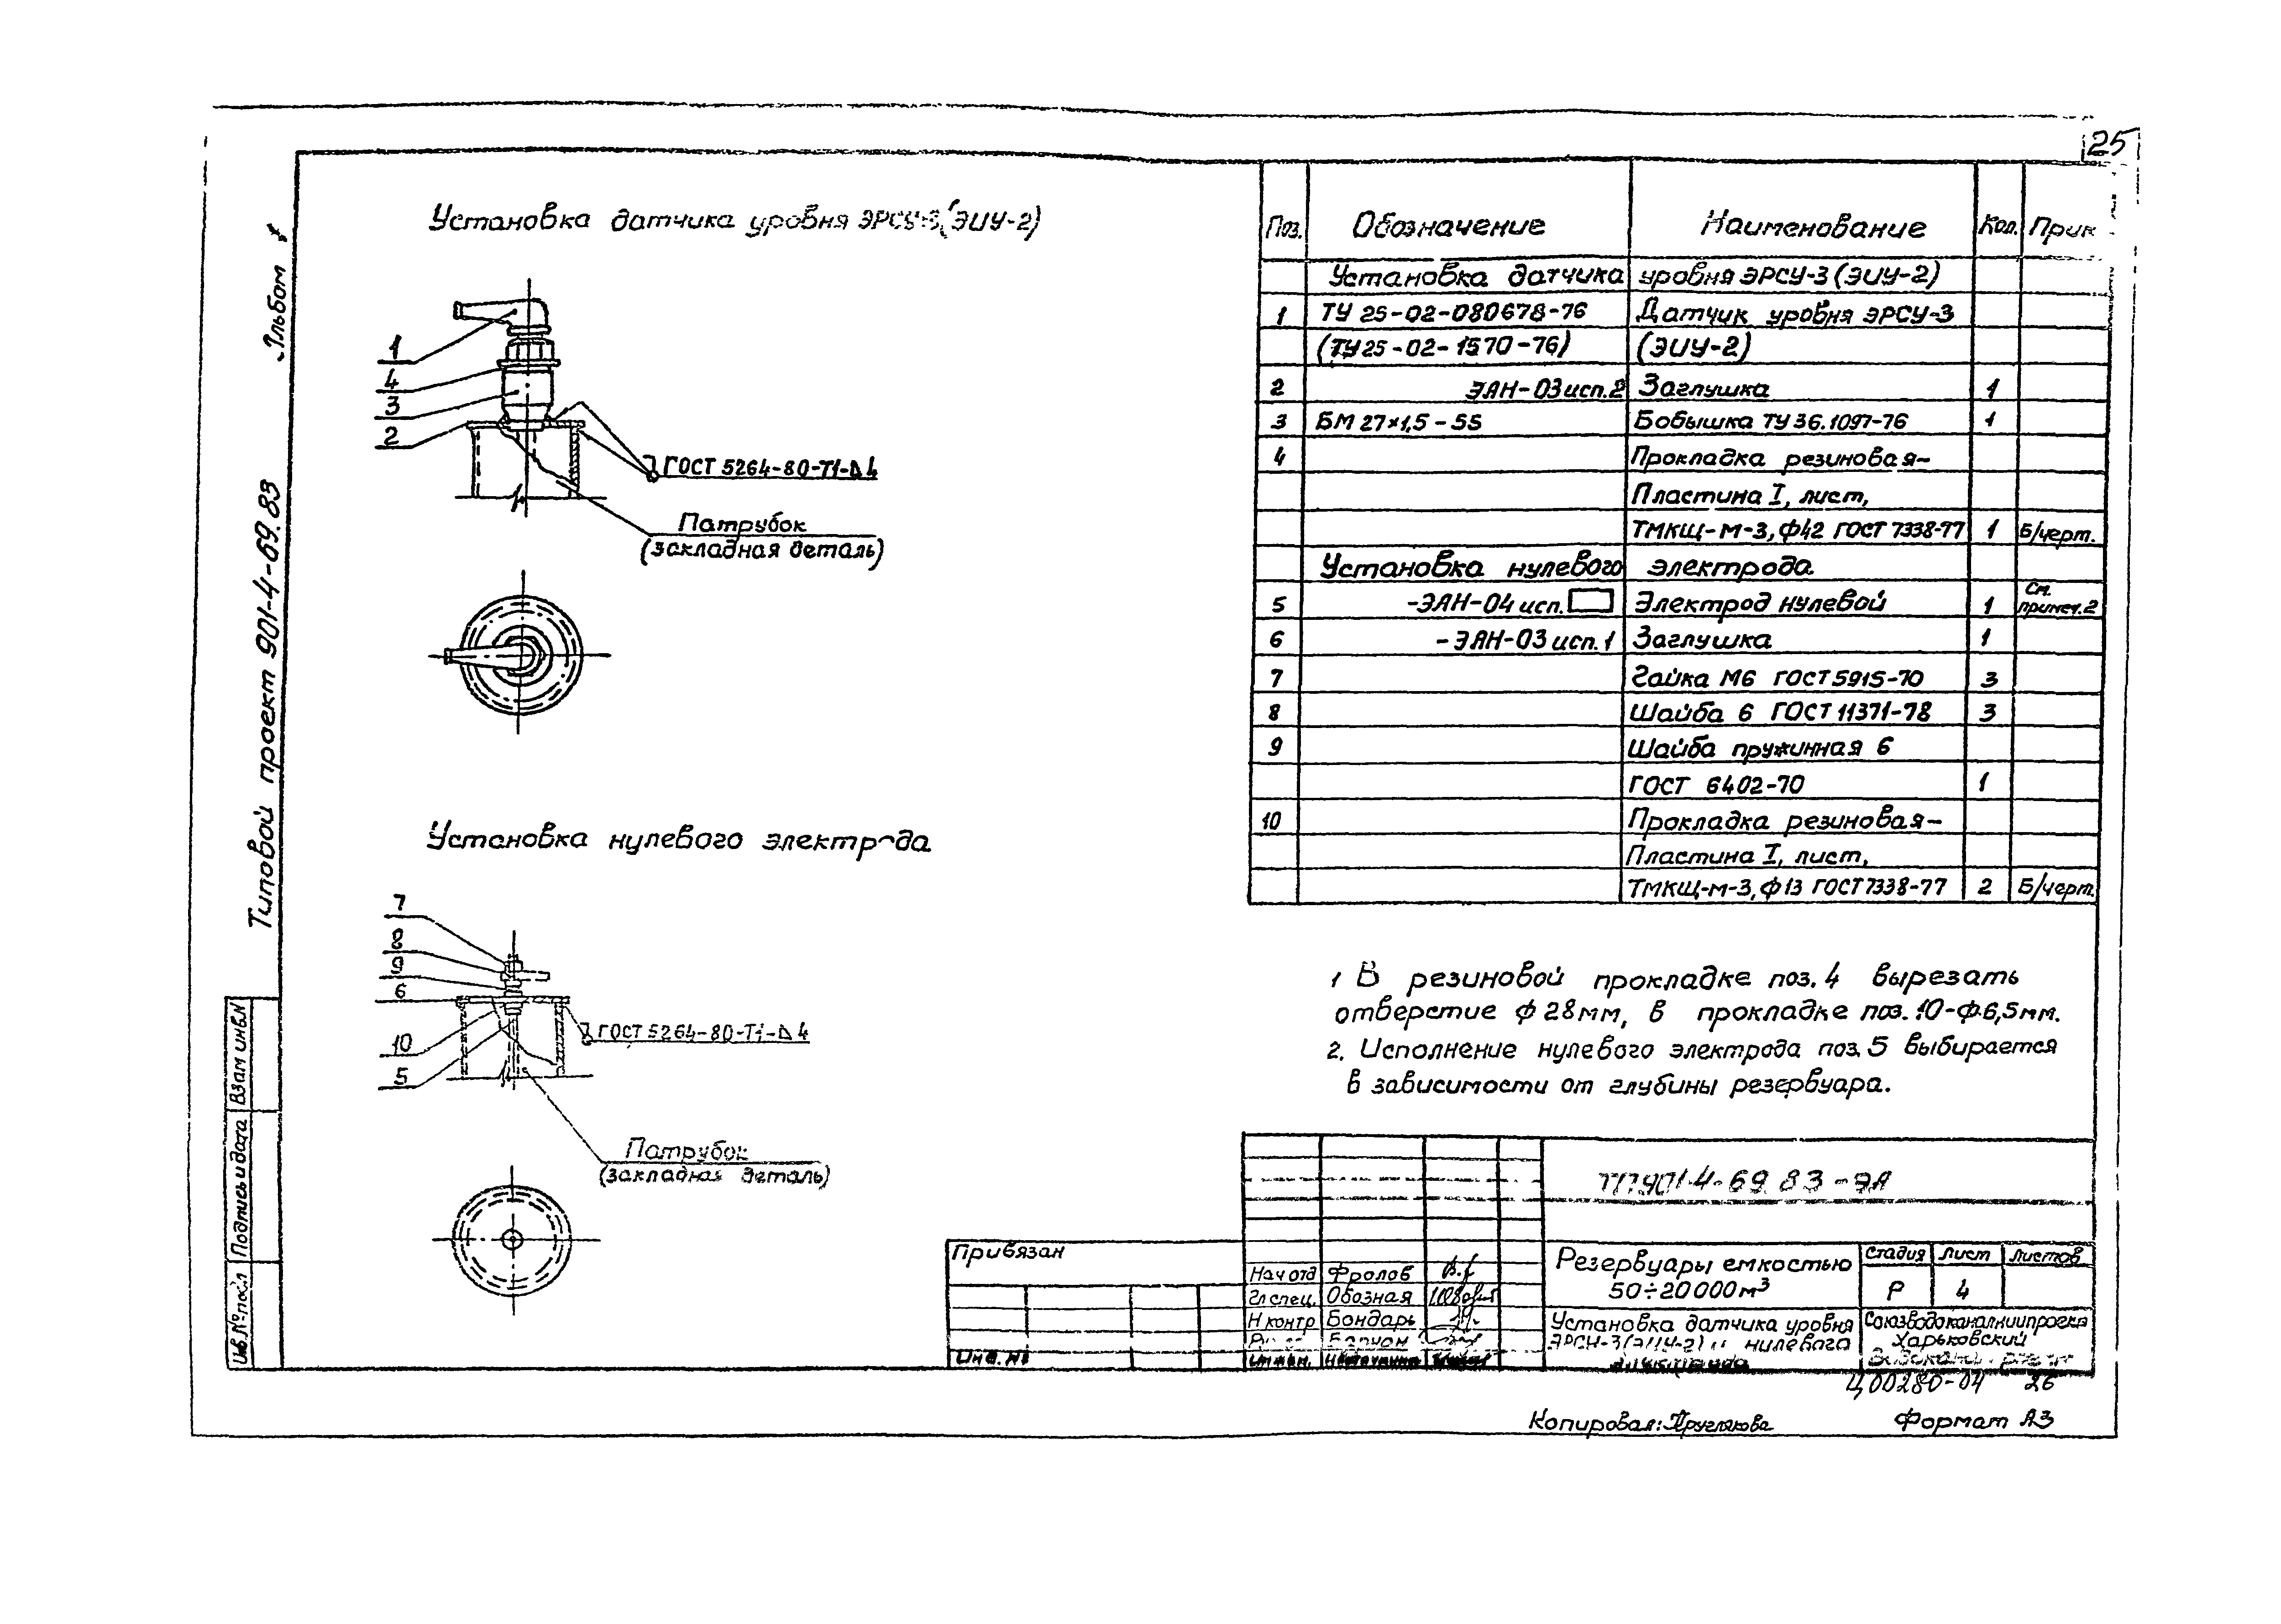 25
Альбом
Типовой проект 901-4-69.83
Взам инв.№
Подпись и дата
Инв.№ посл
Установка датчика уровня ЭРСУ-3 (ЭИУ-2)
1
4
3
2
ГОСТ 5264-80-Т1-Δ4
Патрубок
(закладная деталь)
Установка нулевого электрода
7
8
9
6
10
5
ГОСТ 5264-80-Т1-Δ4
Патрубок
(закладная деталь)
Поз. Обозначение Наименование Кол. Прим
Установка датчика уровня ЭРСУ-3 (ЭИУ-2)
1 ТУ 25-02-080678-76 Датчик уровня ЭРСУ-3
(ТУ 25-02-1570-76) (ЭИУ-2)
2 ЭАН-03 исп.2 Заглушка 1
3 БМ 27×1,5-55 Бобышка ТУ 36.1097-76 1
4 Прокладка резиновая-
Пластина I, лист,
ТМКЩ-М-3, ф42 ГОСТ 7338-77 1 Б/черт.
Установка нулевого электрода
5 -ЭАН-04 исп. Электрод нулевой 1 См. примеч.2
6 -ЭАН-03 исп.1 Заглушка 1
7 Гайка М6 ГОСТ 5915-70 3
8 Шайба 6 ГОСТ 11371-78 3
9 Шайба пружинная 6
ГОСТ 6402-70 1
10 Прокладка резиновая-
Пластина I, лист,
ТМКЩ-М-3, ф13 ГОСТ 7338-77 2 Б/черт.
1 В резиновой прокладке поз. 4 вырезать
отверстие ф 28мм, в прокладке поз. 10-ф.6,5мм.
2. Исполнение нулевого электрода поз 5 выбирается
в зависимости от глубины резервуара.
ТП 901-4-69.83-ЭА
Привязан
Инв. №
Нач отд Фролов
Гл спец. Обозная
Н контр Бондарь
Резервуары емкостью
50÷20000м³
Стадия Лист Листов
Р 4
Установка датчика уровня
ЭРСУ-3 (ЭИУ-2) и нулевого
электрода
Союзводоканалниипроект
Харьковский
Ц00280-04 26
Копировал: Круглякова Формат А3